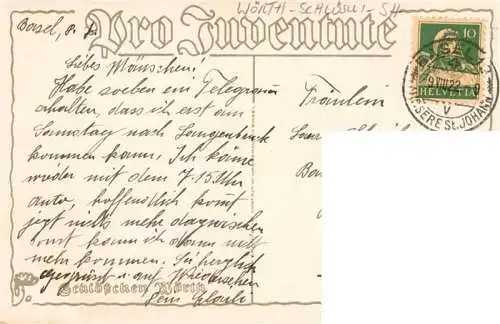 WÖRTH - SCHLÖSSLI - SH
Basel, 
Pro Juventute
Liebes Mäuschen!
Habe soeben ein Telegramm
erhalten, dass ich erst am
Samstag nach Langenbruck
kommen kann, Ich käme
wieder mit dem 7.15 Uhr
auto, hoffentlich kommt
jetzt nichts mehr dazwischen
sonst kann ich dann nicht
mehr kommen. Sei herzlich
gegrüsst u. auf Wiedersehen
Dein
Schlößchen Wörth
Fräulein
10
HELVETIA
BASEL
ÄUSSERE St. JOHANN
V